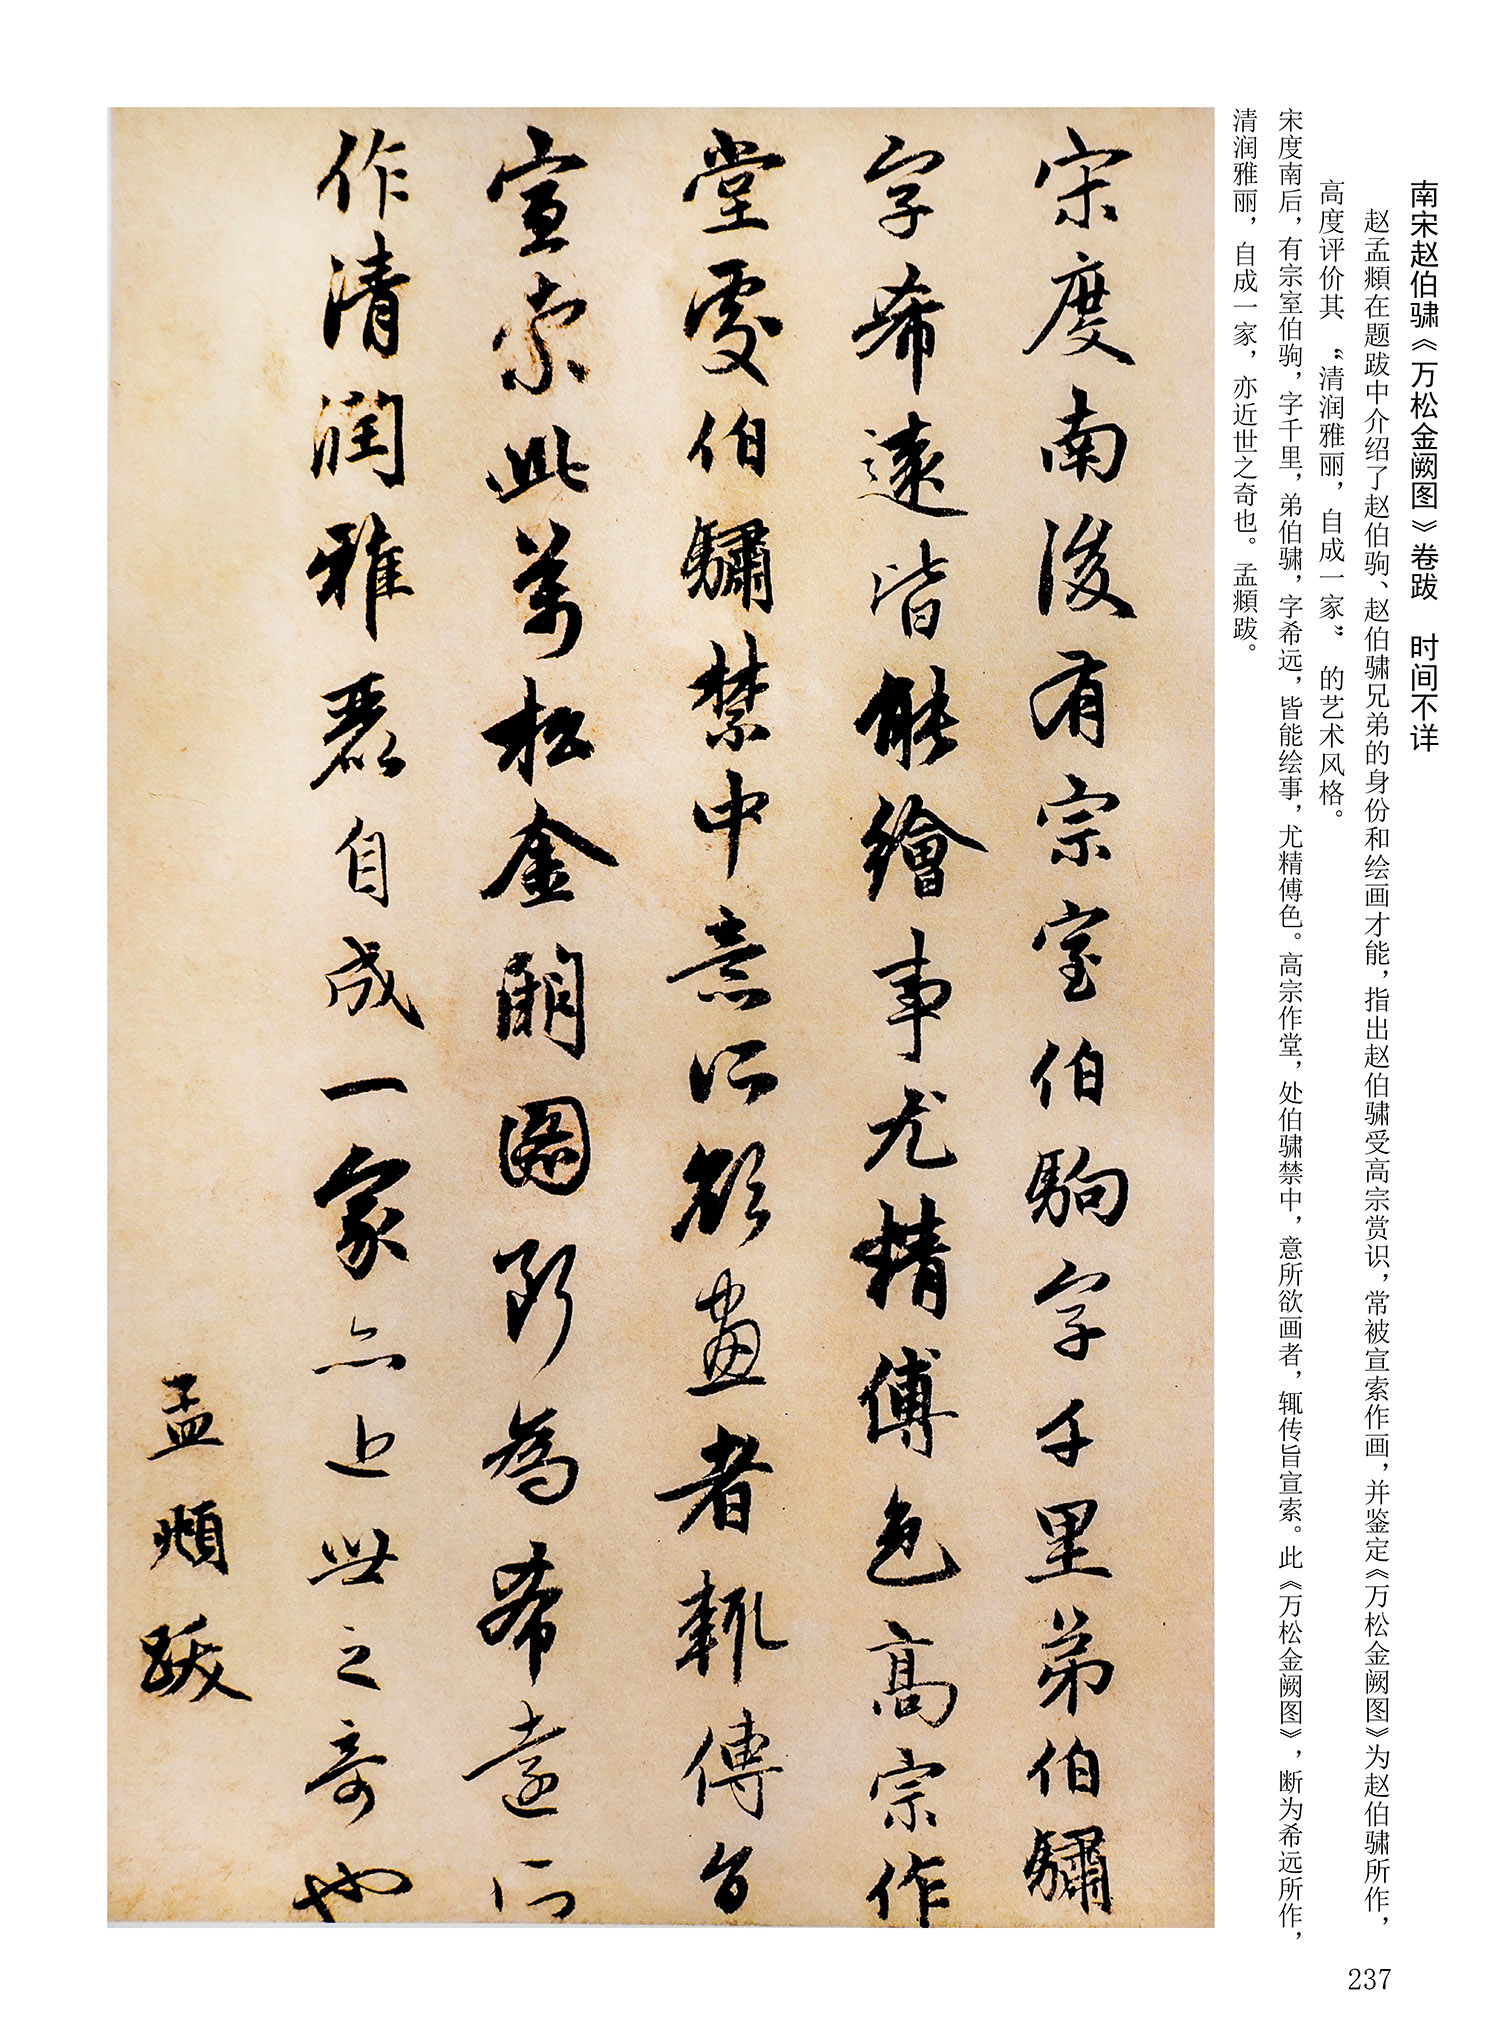 南宋赵伯骕《万松金阙图》卷跋　时间不详
赵孟頫在题跋中介绍了赵伯驹、赵伯骕兄弟的身份和绘画才能，指出赵伯骕受高宗赏识，常被宣索作画，并鉴定《万松金阙图》为赵伯骕所作，
高度评价其“清润雅丽，自成一家”的艺术风格。
宋度南后，有宗室伯驹，字千里，弟伯骕，字希远，皆能绘事，尤精傅色。高宗作堂，处伯骕禁中，意所欲画者，辄传旨宣索。此《万松金阙图》，断为希远所作，
清润雅丽，自成一家，亦近世之奇也。孟頫跋。
宋度南後有宗室伯駒字千里弟伯驌
字希遠皆能繪事尤精傅色高宗作
堂處伯驌禁中意所欲畫者輒傳旨
宣索此萬松金闕圖断為希遠所
作清潤雅麗自成一家亦近世之奇也
孟頫跋
237